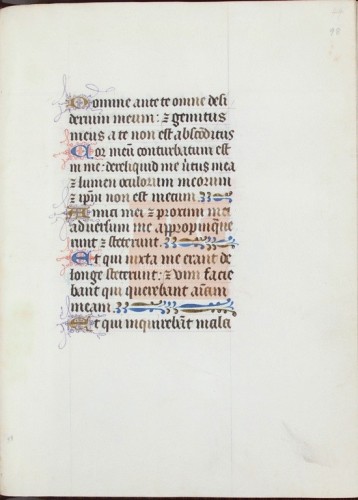 Domine ante te omne desi
derium meum: ⁊ gemitus
meus a te non est absc̄ditus
Cor meū conturbatum est
in me: dereliquid me v̄tus mea
⁊ lumen oculorum meorum
⁊ ip̄m non est mecum.
Amici mei ⁊ proximi mei
adversum me appropinque
runt ⁊ steterunt.
Et qui iuxta me erant de
longe steterunt: ⁊ vim facie
bant qui querebant aīam
meam.
Et qui inquirebāt mala